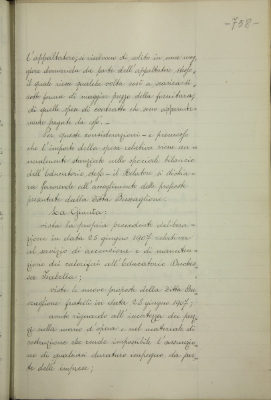 -758-
l'appaltatore, si risolvono di solito in una mag
giore domanda da parte dell'appaltatore stesso,
il quale riesce qualche volta così a scaricarsi,
sotto forma di maggior prezzo della fornitura,
di quelle spese di contratto che sono apparente
mente pagate da esso.
Per queste considerazioni - e premesso
che l'importo della spesa relativa viene an
nualmente stanziato nello speciale bilancio
dell'Educatorio stesso - il Relatore si dichia
ra favorevole all'accoglimento delle proposte
presentate dalla Ditta Buscaglione.
La Giunta;
vista la propria precedente delibera
zione in data 26 giugno 1907 relativa
al servizio di accensione e di manuten
zione dei caloriferi all'Educatorio Duches
sa Isabella;
viste le nuove proposte della Ditta Bu
scaglione fratelli in data 28 giugno 1907;
avuto riguardo all'incertezza dei prez
zi sulla mano d'opera e nel materiale di
costruzione che rende impossibile l'assunzio
ne di qualsiasi duraturo impegno da par
te delle imprese;